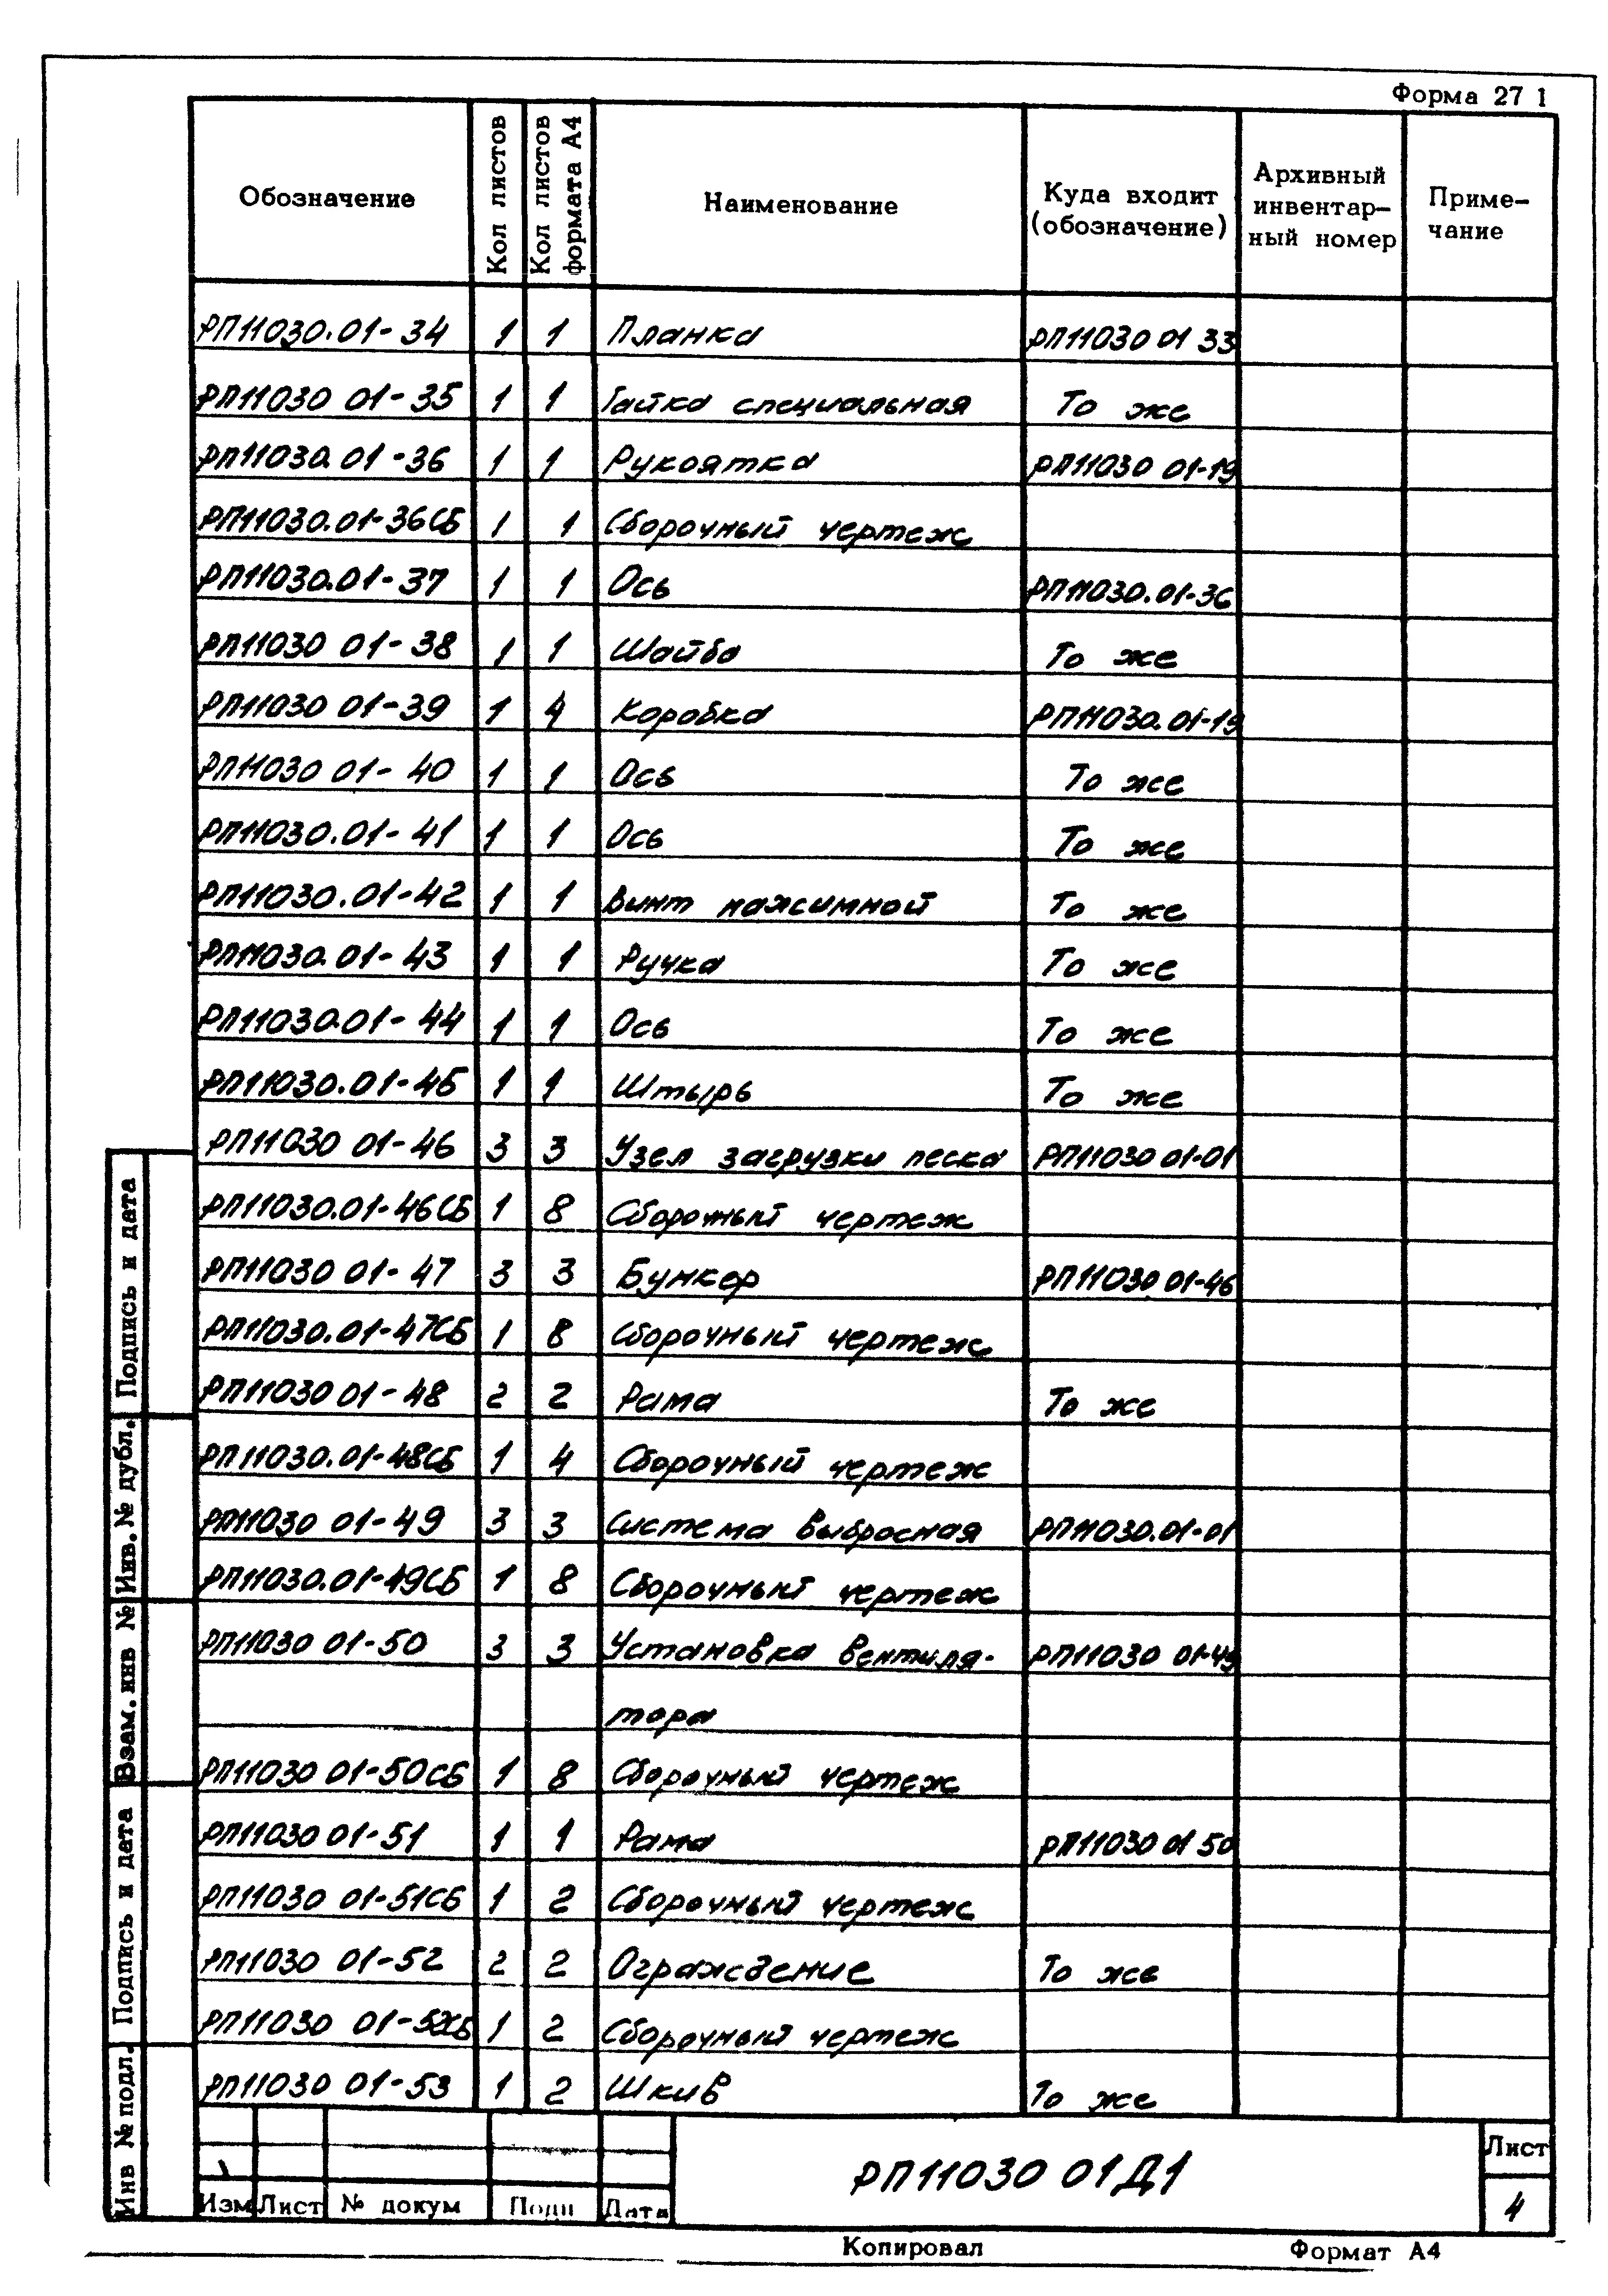 Форма 27 1
Обозначение Кол листов Кол листов формата А4 Наименование Куда входит (обозначение) Архивный инвентар-ный номер Приме-чание
РП11030.01-34 1 1 Планка РП11030 01 33
РП11030 01-35 1 1 Гайка специальная То же
РП11030.01-36 1 1 Рукоятка РП11030 01-19
РП11030.01-36СБ 1 1 Сборочный чертеж
РП11030.01-37 1 1 Ось РП11030.01-36
РП11030 01-38 1 1 Шайба То же
РП11030 01-39 1 4 Коробка РП11030.01-19
РП11030 01-40 1 1 Ось То же
РП11030.01-41 1 1 Ось То же
РП11030.01-42 1 1 Винт нажимной То же
РП11030.01-43 1 1 Ручка То же
РП11030.01-44 1 1 Ось То же
РП11030.01-45 1 1 Штырь То же
РП11030 01-46 3 3 Узел загрузки песка РП11030 01-01
РП11030.01-46СБ 1 8 Сборочный чертеж
РП11030 01-47 3 3 Бункер РП11030 01-46
РП11030.01-47СБ 1 8 Сборочный чертеж
РП11030 01-48 2 2 Рама То же
РП11030.01-48СБ 1 4 Сборочный чертеж
РП11030 01-49 3 3 Система выбросная РП11030.01-01
РП11030.01-49СБ 1 8 Сборочный чертеж
РП11030 01-50 3 3 Установка вентиля- РП11030 01-49
тора
РП11030 01-50СБ 1 8 Сборочный чертеж
РП11030 01-51 1 1 Рама РП11030 01 50
РП11030 01-51СБ 1 2 Сборочный чертеж
РП11030 01-52 2 2 Ограждение То же
РП11030 01-52СБ 1 2 Сборочный чертеж
РП11030 01-53 1 2 Шкив То же
Подпись и дата
Инв. № дубл.
Взам. инв №
Подпись и дата
Инв № подл.
Изм Лист № докум Подп Дата
РП11030 01Д1
Лист
4
Копировал Формат А4